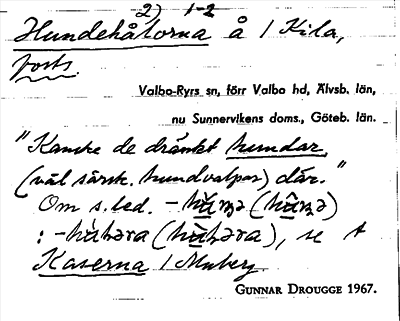 2) 1-2
Hundehålorna å / Kila,
forts.
Valbo-Ryrs sn, förr Valbo hd, Älvsb. län,
nu Sunnervikens doms., Göteb. län.
"Kanske de dränkt hundar
(väl särsk. hundvalpar) där."
Om s.led.
se
Kaserna / Munberg
GUNNAR DROUGGE 1967.